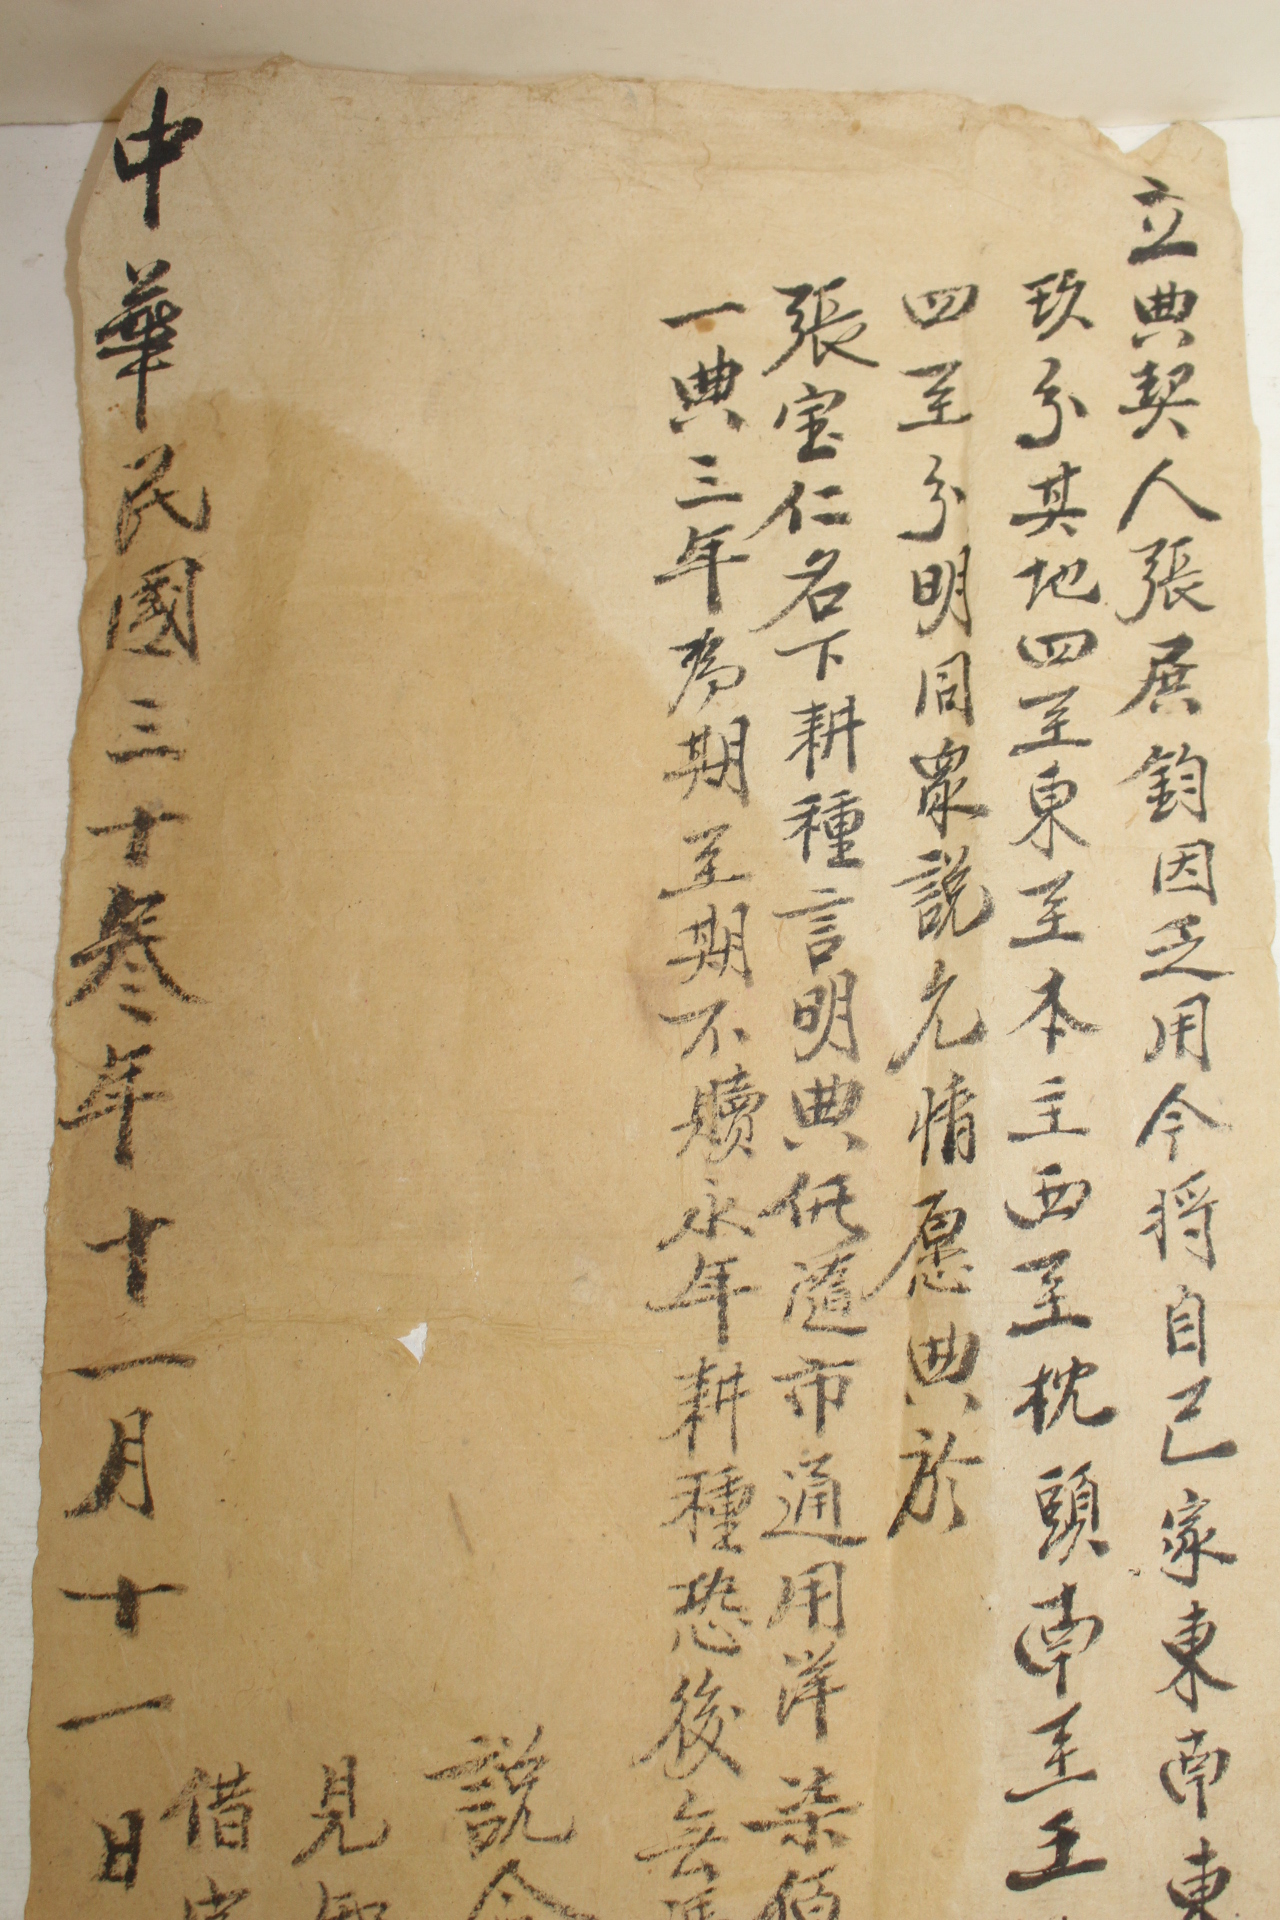 立典契人張展鈞因乏用今将自己家東南東
玖分其地四至東至本主西至枕頭南至王
四至分明同眾說允情愿典於
張宝仁名下耕種言明典価随市通用洋柒佰
一典三年為期至期不贖永年耕種恐後無憑
說合
見
借字
中華民國三十叁年十一月十一日